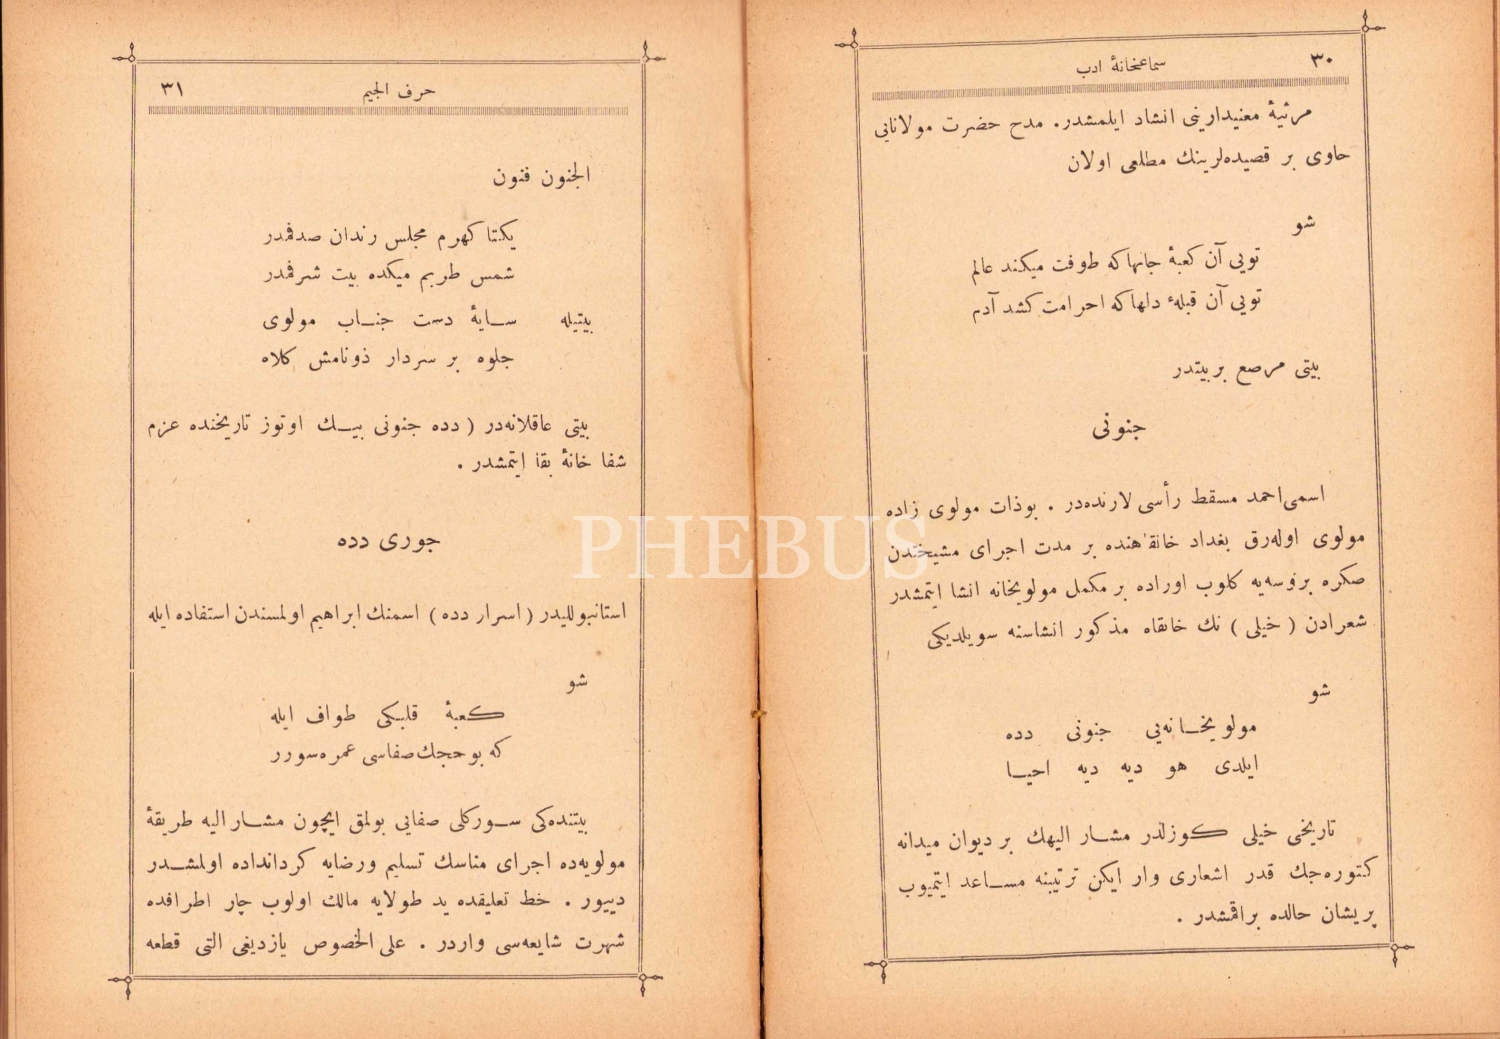 ٣٠
سماعخانۀ ادب
مرثیۀ معنیدارینی انشاد ایلمشدر. مدح حضرت مولانایی
حاوی بر قصیده‌لرینك مطلعی اولان
شو
تویی آن کعبۀ جانها که طوفت میکند عالم
تویی آن قبلۀ دلها که احرامت کشد آدم
بیتی مرصع بر بیتدر
جنونی
اسمی احمد مسقط رأسی لارنده‌در . بوذات مولوی زاده
مولوی اوله‌رق بغداد خانقاهنده بر مدت اجرای مشیختدن
صکره بروسه‌یه کلوب اوراده بر مکمل مولویخانه انشا ایتمشدر
شعرادن ( خیلی ) نك خانقاه مذکور انشاسنه سویلدیکی
شو
مولویخانه‌یی جنونی دده
ایلدی هو دیه دیه احیا
تاریخی خیلی کوزلدر مشار الیهك بر دیوان میدانه
کتوره‌جك قدر اشعاری وار ایکن ترتیبنه مساعد ایتمیوب
پریشان حالده براقمشدر .
حرف الجیم
٣١
الجنون فنون
یکتا کهرم مجلس رندان صدفمدر
شمس طربم میکده بیت شرفمدر
بیتیله سایۀ دست جناب مولوی
جلوه بر سردار ذونامش کلاه
بیتی عاقلانه‌در ( دده جنونی بیك اوتوز تاریخنده عزم
شفا خانۀ بقا ایتمشدر .
جوری دده
استانبوللیدر ( اسرار دده ) اسمنك ابراهیم اولمسندن استفاده ایله
شو
کعبۀ قلبکی طواف ایله
که بو حجك صفاسی عمره سورر
بیتنده‌کی سورکلی صفایی بولمق ایچون مشار الیه طریقۀ
مولویه‌ده اجرای مناسك تسلیم ورضایه کردانداده اولمشدر
دییور . خط تعلیقده ید طولایه مالك اولوب چار اطرافده
شهرت شایعه‌سی واردر . علی الخصوص یازدیغی التی قطعه
PHEBUS